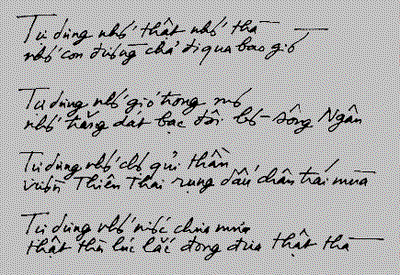 Tự dưng nhớ thật nhớ thà
nhớ con đường chả đi qua bao giờ
Tự dưng nhớ gió trong mơ
nhớ trăng dát bạc đôi bờ sông Ngân
Tự dưng nhớ chỗ quỉ thần
vườn Thiên Thai rụng dấu chân trái mùa
Tự dưng nhớ mắc chưa mưa
thật thà lúc lắc đong đưa thật thà